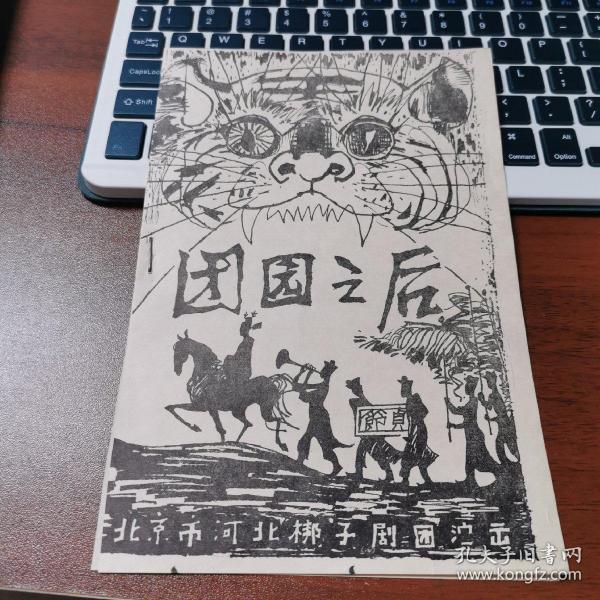 Tab
Q W E R T Y U I O P
CapsLock
Shift
Command
Alt
Option
团园之后
節貞
北京市河北梆子剧团演出
孔夫子旧书网
www.kongfz.com